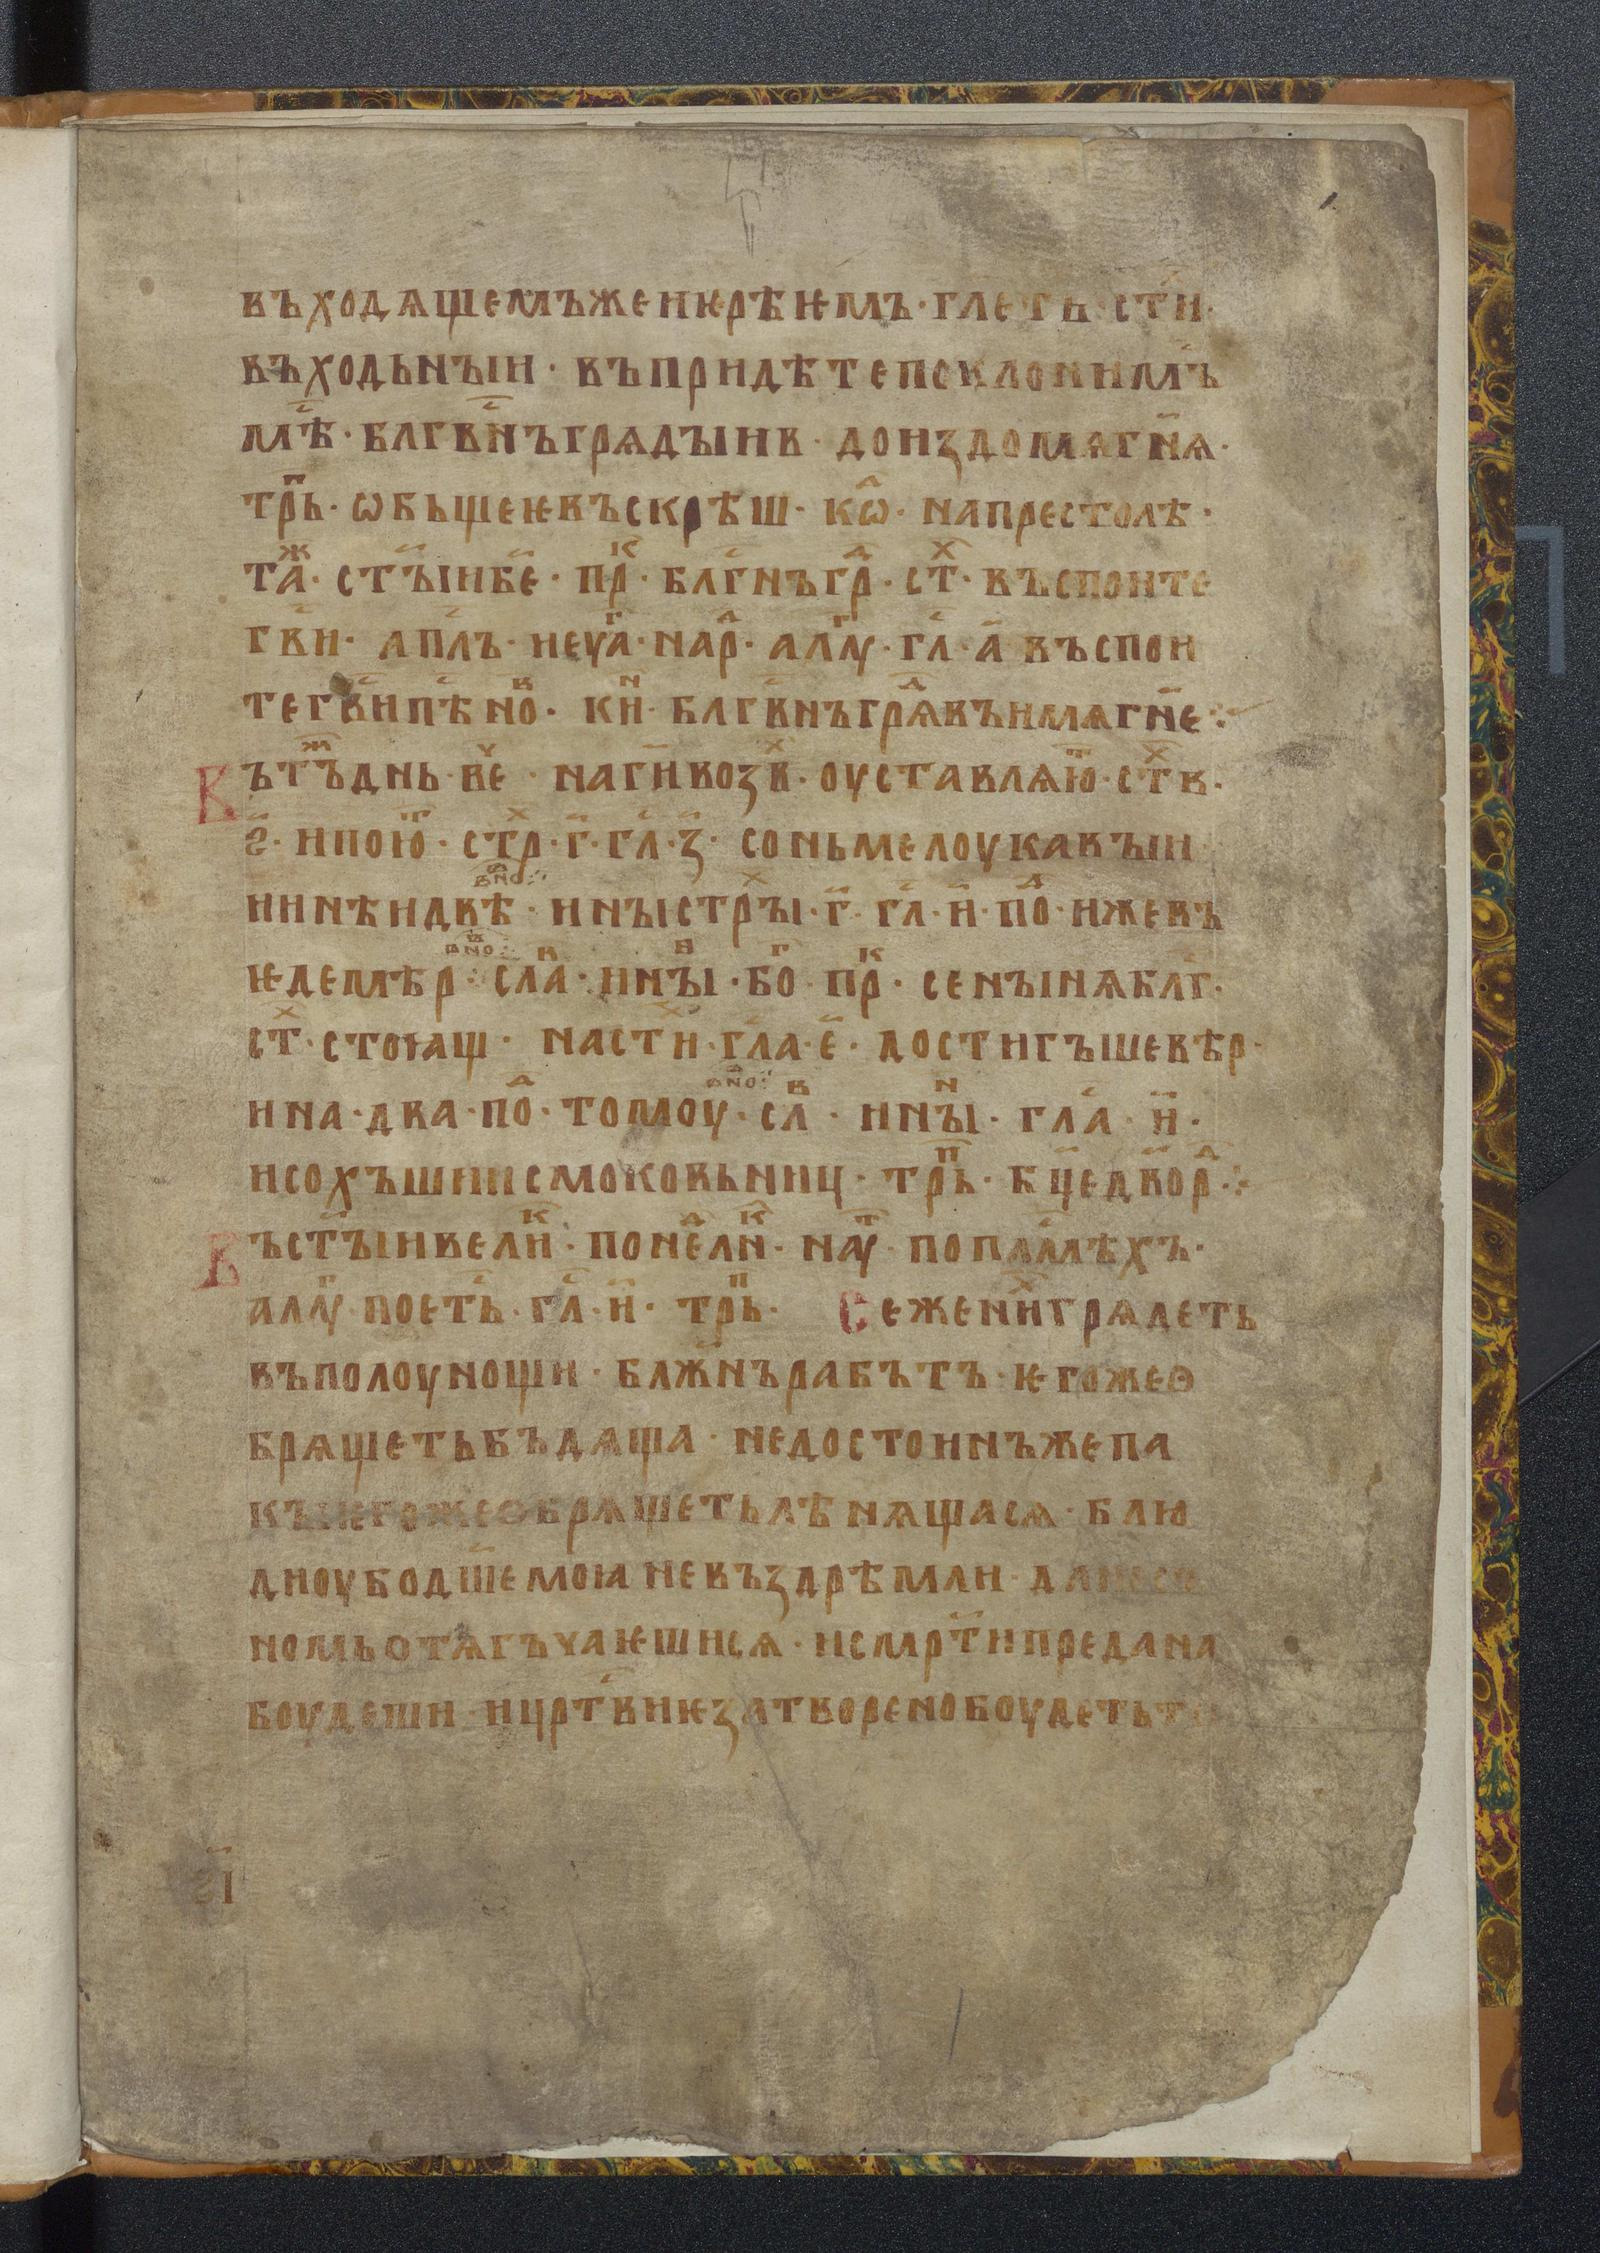 въходѧщемъжеиѥрѣѥмъ·гл҃еть·ст҃и·
въходьнꙑи·въпридѣтепоклонимъ
мс҃ѣ·блгв҃нъгрѧдꙑив·донздомѧгн҃ѧ·
трп҃ь·ѡбьщеѥвъскрѣш·кѡ҃д·напрестолѣ·
таж҃·ст҃ꙑибе҃·прк҃·блг҃нъгрд҃·стх҃·въспоите
гв҃и·апл҃ъ·иеуаг҃·нард҃·аллуг҃·гл҃·а҃въспои
тегв҃ипѣ҃нов·кин҃·блгв҃нъгрѧд҃въимѧгн҃е⁘
Вътъж҃днь·веч҃·наги҃возвх҃·оуставлѧют҃·стх҃в·
ѕ҃·ипоют҃·стх҃р·г҃·гл҃·з҃·соньмелоукавꙑи
ининѣидвѣ·инꙑстрх҃ꙑ·г҃·гл҃·и҃·под҃·ижевъ
ѥдемѣр·слав҃·инн҃ꙑ·бог҃·прк҃·сенꙑнѧблг҃·
стх҃·стоꙗщ·настх҃и·гл҃а·е҃·достигъшевѣр·
ина·два·под҃·томоу·слв҃·инн҃ꙑ·гл҃а·и҃·
исохъшиисмоковьниц·трп҃ь·бц҃едв҃орд҃⁘
Въст҃ꙑивелик҃·понед҃лик҃·наут҃·попс҃лмѣхъ·
аллуг҃·поет҃ь·гл҃·и҃·трп҃ь·Сежених҃грѧдеть
въполоунощи·блж҃нърабътъ·ѥгожеѳ
брѧщетьбъдѧща·недостоинъжепа
кꙑѥгожеѳбрѧщетьлѣнѧщасѧ·блю
дноубодш҃емоꙗневъздрѣмли·дане
номьотѧгъчаѥшисѧ·исмрт҃ипредана
боудеши·ицрт҃виѥзатворенобоудетьт
ѕ҃і